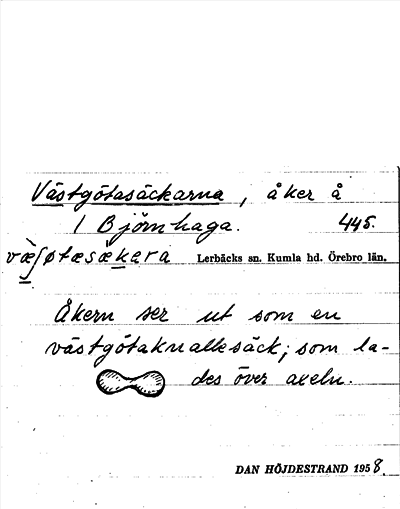 Västgötasäckarna, åker å
1 Björnhaga. 445.
væ̀ʃøtæsækara Lerbäcks sn. Kumla hd. Örebro län.
Åkern ser ut som en
västgötaknallesäck, som la-
des över axeln.
DAN HÖJDESTRAND 1958.